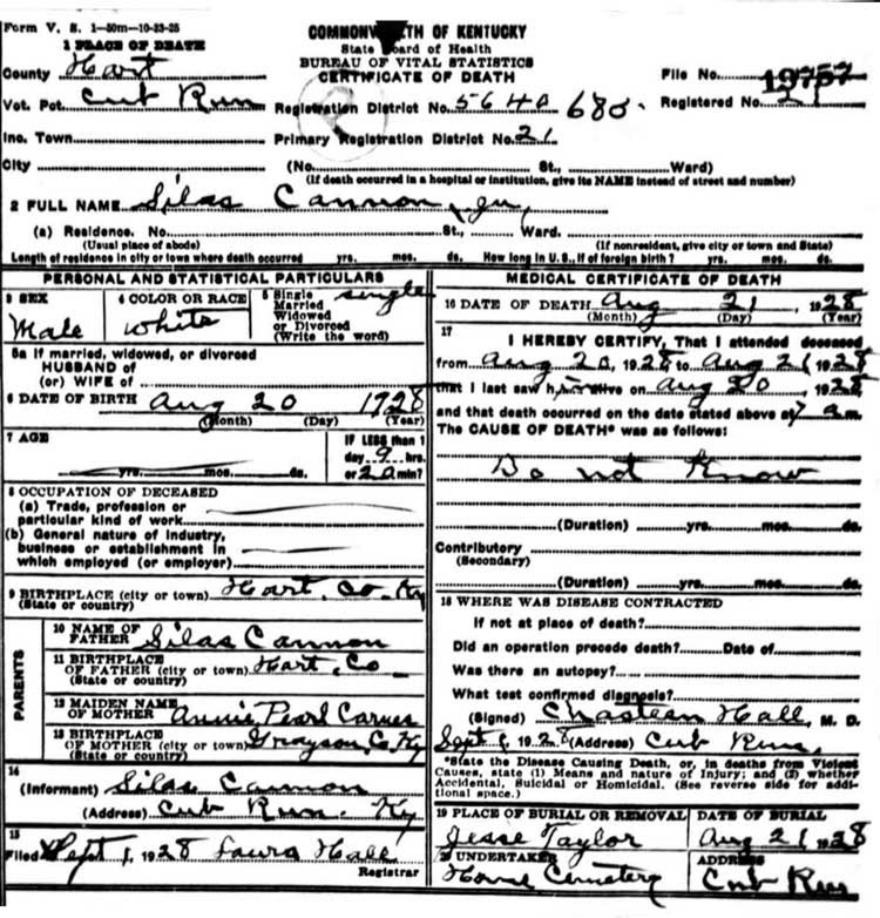 Form V. S. 1-50m-10-23-25
COMMONW TH OF KENTUCKY
State Board of Health
BUREAU OF VITAL STATISTICS
CERTIFICATE OF DEATH
1 PLACE OF DEATH
County Hart
File No. 19757
Vot. Pct. Cub Run Registration District No. 5640 680.
Registered No. 21
Inc. Town Primary Registration District No. 21
City (No. St., Ward)
(If death occurred in a hospital or institution, give its NAME instead of street and number)
2 FULL NAME Silas Cannon, Jr,
(a) Residence. No. St., Ward.
(Usual place of abode) (If nonresident, give city or town and State)
Length of residence in city or town where death occurred yrs. mos. ds. How long in U. S., if of foreign birth? yrs. mos. ds.
PERSONAL AND STATISTICAL PARTICULARS
3 SEX
Male
4 COLOR OR RACE
white
5 Single
Married
Widowed
or Divorced
(Write the word)
single
5a If married, widowed, or divorced
HUSBAND of
(or) WIFE of
6 DATE OF BIRTH Aug 20 1928
(Month) (Day) (Year)
7 AGE
yrs. mos. ds.
IF LESS than 1
day 9 hrs.
or 20 min?
8 OCCUPATION OF DECEASED
(a) Trade, profession or
particular kind of work
(b) General nature of industry,
business or establishment in
which employed (or employer)
9 BIRTHPLACE (city or town) Hart. Co. Ky
(State or country)
PARENTS
10 NAME OF
FATHER Silas Cannon
11 BIRTHPLACE
OF FATHER (city or town) Hart. Co
(State or country)
12 MAIDEN NAME
OF MOTHER Annie Pearl Carnes
13 BIRTHPLACE
OF MOTHER (city or town) Grayson, Co, Ky
(State or country)
14
(Informant) Silas Cannon
(Address) Cub Run. Ky
15
Filed Sept 1, 1928 Laura Hall
Registrar
MEDICAL CERTIFICATE OF DEATH
16 DATE OF DEATH Aug 21, 1928
(Month) (Day) (Year)
17
I HEREBY CERTIFY, That I attended deceased
from Aug 20, 1928 to Aug 21 1928
that I last saw h alive on Aug 20, 1928
and that death occurred on the date stated above at 7 am.
The CAUSE OF DEATH* was as follows:
Do not Know
(Duration) yrs. mos. ds.
Contributory
(Secondary)
(Duration) yrs. mos. ds.
18 WHERE WAS DISEASE CONTRACTED
If not at place of death?
Did an operation precede death? Date of
Was there an autopsy?
What test confirmed diagnosis?
(Signed) Chasteen Hall, M. D.
Sept 1, 1928 (Address) Cub Run,
*State the Disease Causing Death, or, in deaths from Violent
Causes, state (1) Means and nature of Injury; and (2) whether
Accidental, Suicidal or Homicidal. (See reverse side for addi-
tional space.)
19 PLACE OF BURIAL OR REMOVAL
Jesse Taylor
DATE OF BURIAL
Aug 21 1928
20 UNDERTAKER
Home Cemetery
ADDRESS
Cub Run